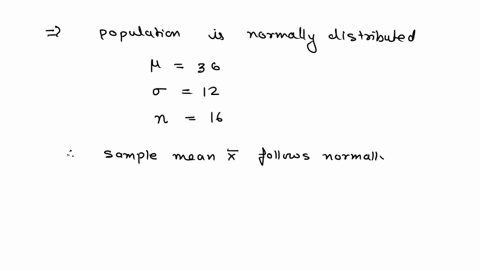 ⇒ population is normally distributed
μ = 36
σ = 12
n = 16
∴ sample mean x̄ follows normall